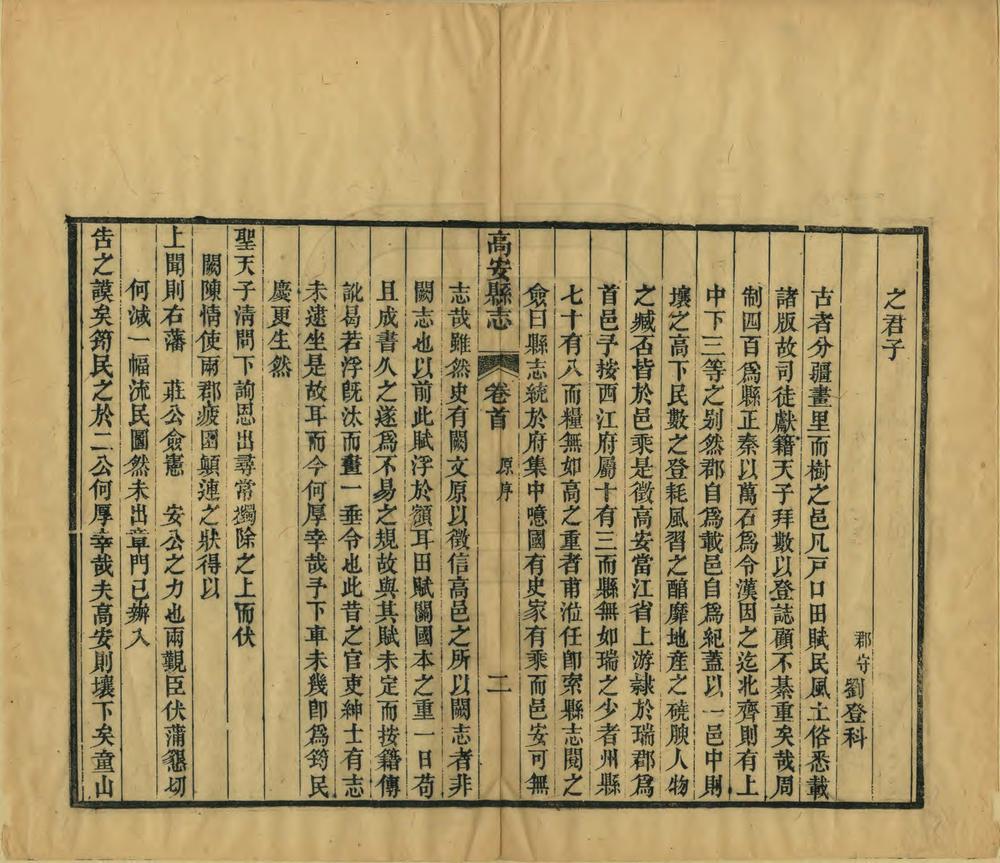 之君子
郡守劉登科
古者分疆畫里而樹之邑凡戸口田賦民風土俗悉載
諸版故司徒獻籍天子拜數以登誌顧不綦重矣哉周
制四百爲縣正秦以萬石爲令漢因之迄北齊則有上
中下三等之别然郡自爲載邑自爲紀蓋以一邑中則
壤之高下民數之登耗風習之醕靡地産之磽腴人物
之臧否皆於邑乘是徵高安當江省上游隷於瑞郡爲
首邑予按西江府屬十有三而縣無如瑞之少者州縣
七十有八而糧無如高之重者甫涖任卽索縣志閱之
僉曰縣志統於府集中噫國有史家有乘而邑安可無
高安縣志 卷首 原序 二
志哉雖然史有闕文原以徵信高邑之所以闕志者非
闕志也以前此賦浮於額耳田賦關國本之重一日苟
且成書久之遂爲不易之規故與其賦未定而按籍傳
訛曷若浮旣汰而畫一垂令也此昔之官吏紳士有志
未逮坐是故耳而今何厚幸哉予下車未幾卽爲筠民
慶更生然
聖天子淸問下詢恩出尋常蠲除之上而伏
闕陳情使兩郡疲圉顛連之狀得以
上聞則右藩 莊公僉憲 安公之力也兩觀臣伏蒲懇切
何減一幅流民圖然未出章門已辦入
告之謨矣筠民之於二公何厚幸哉夫高安則壤下矣童山